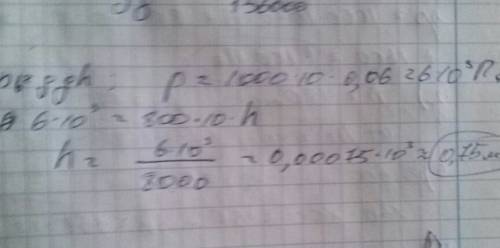 136000
ρgh; p = 1000·10·0,06 = 6·10³ П
6·10³ = 800·10·h
h = 6·10³ / 8000 = 0,00075·10³ = 0,75 м